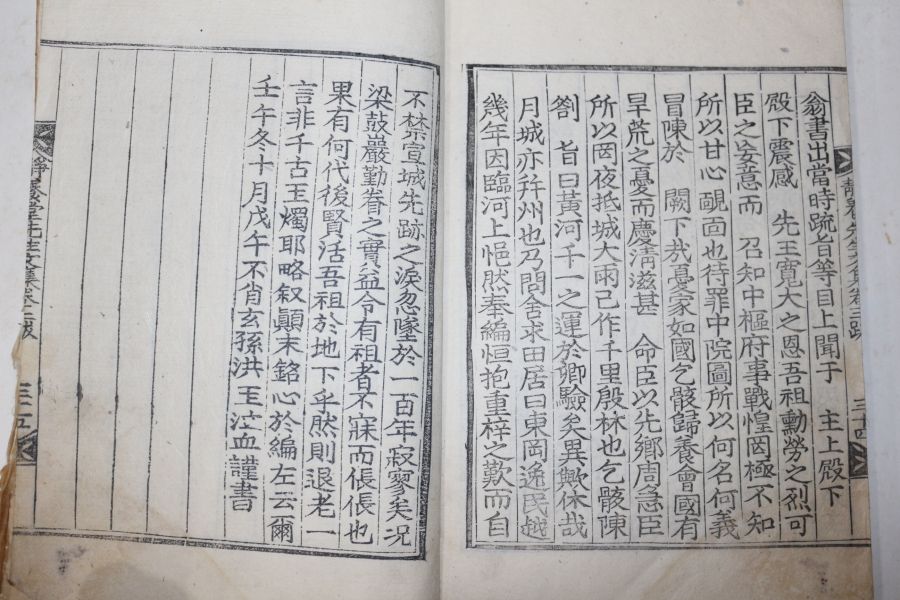 翁書出當時疏旨等目上聞于 主上殿下
殿下震感 先王寬大之恩吾祖勳勞之烈可
臣之妄意而 召知中樞府事戰惶罔極不知
所以甘心靦面也待罪中院圖所以何名何義
冒陳於 闕下哉憂家如國乞骸歸養會國有
旱荒之憂而慶淸滋甚 命臣以先鄕周急臣
所以罔夜抵城大雨已作千里殷林也乞骸陳
劄 旨曰黃河千一之運於卿驗矣異歟休哉
月城亦幷州也乃問舍求田居曰東岡逸民越
幾年因臨河上悒然奉編恒抱重梓之歎而自
不禁宣城先跡之淚忽墜於一百年寂寥矣況
梁鼓巖勤眷之實益令有祖者不寐而倀倀也
果有何代後賢活吾祖於地下乎然則退老一
言非千古玉燭耶略叙顚末銘心於編左云爾
壬午冬十月戊午不肖玄孫洪 玉泣血謹書